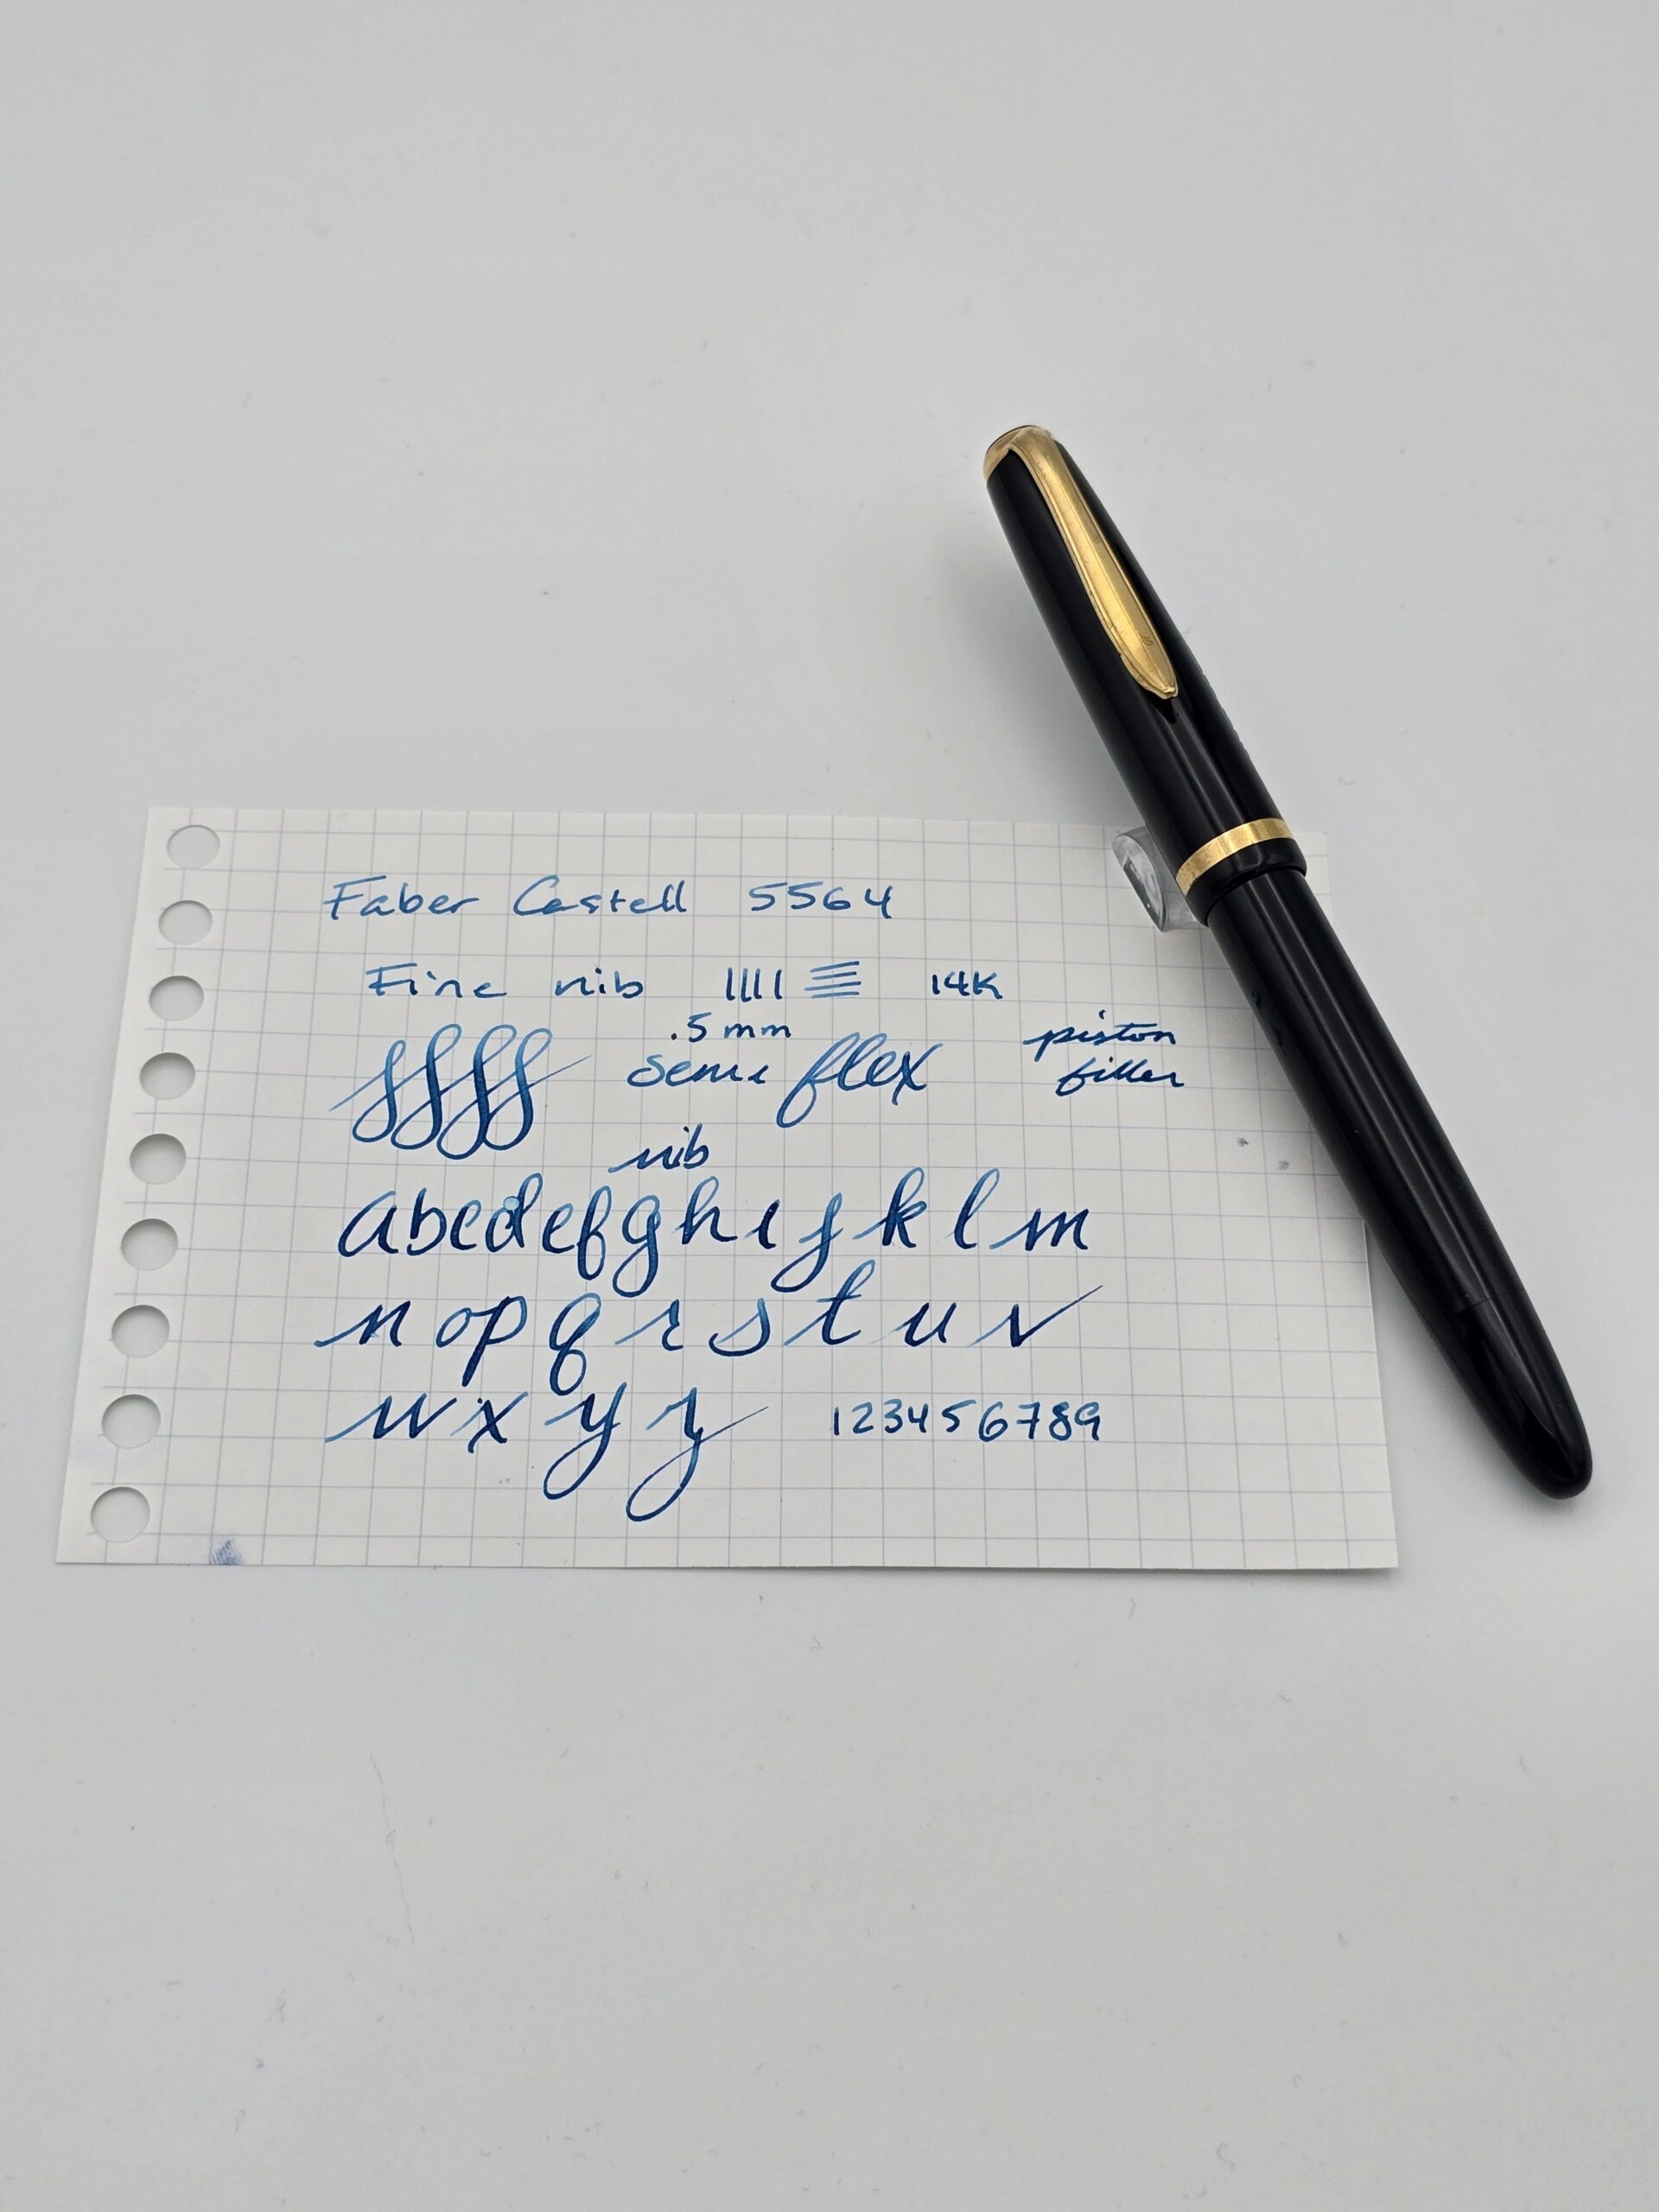 Faber Castell 5564
Fine nib 14K
.5 mm
semi flex
piston
filler
nib
abcdefghijklm
nopqrstuv
wxyz 123456789